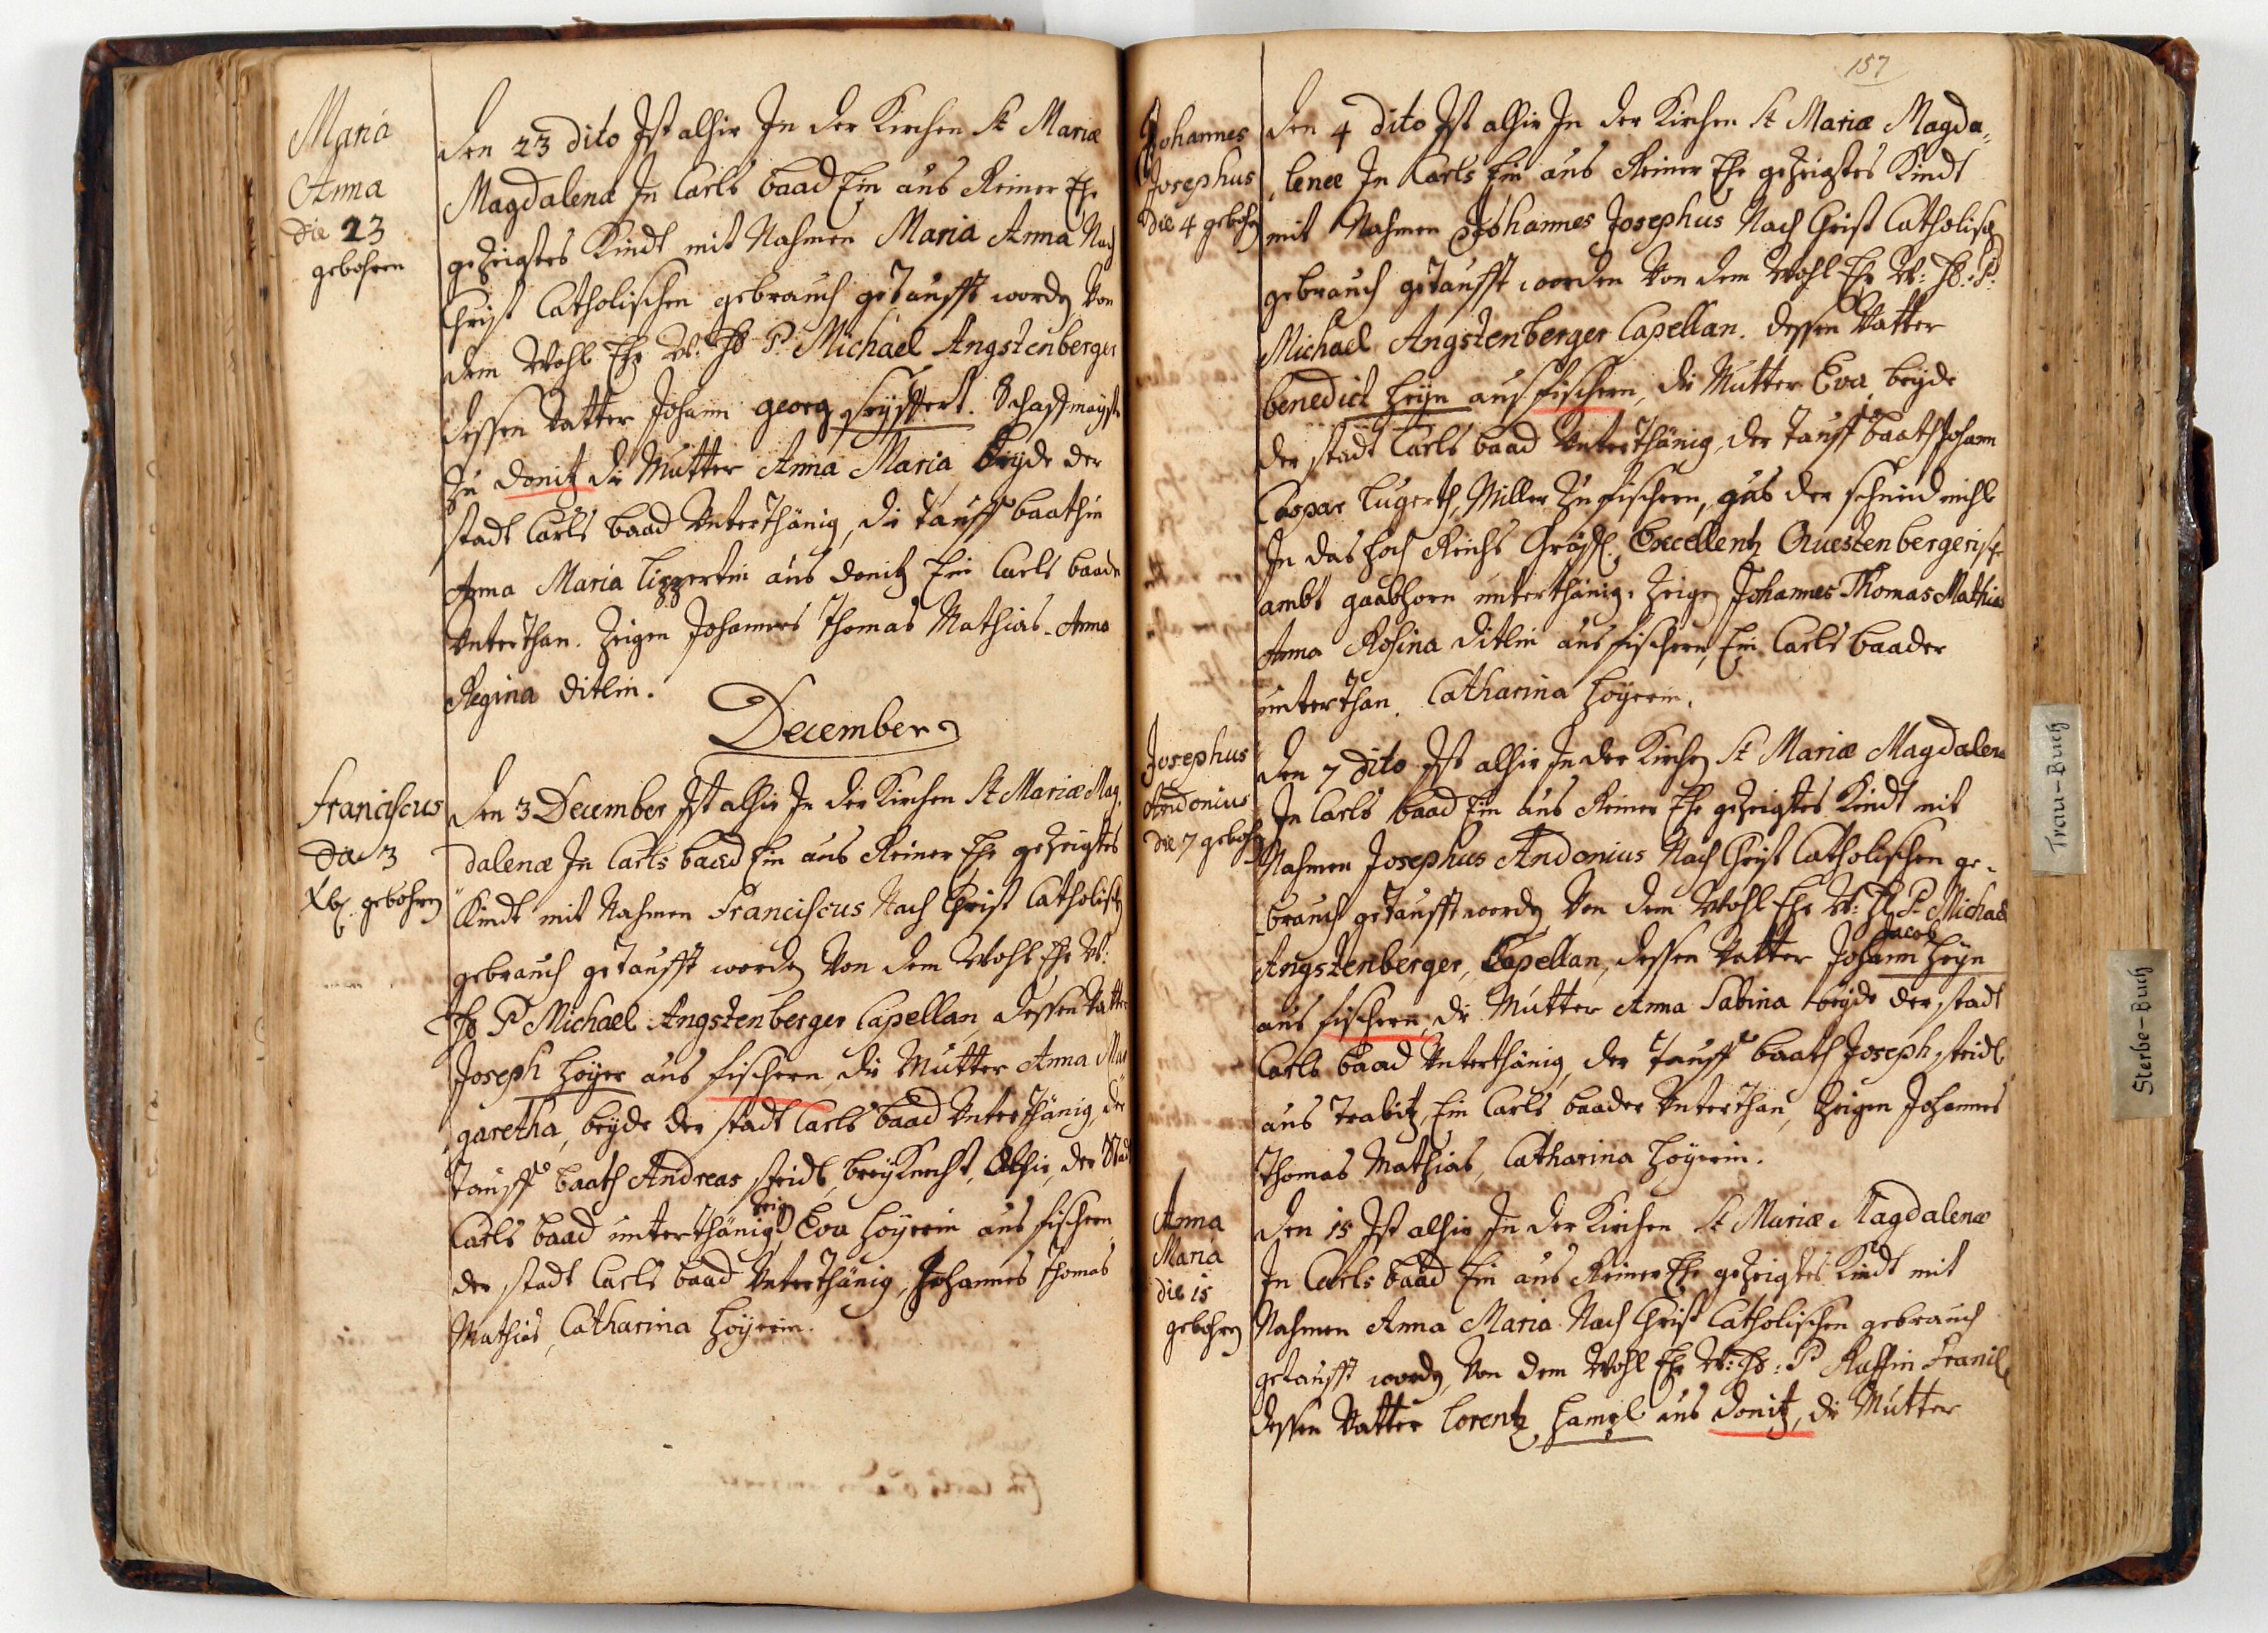 Maria
Anna
die 23
gebohren
den 23 dito Ist alhir In der Kirchen St Mariæ
Magdalenæ In Carls baad Ein aus Reiner Ehe
gezeigtes Kindt mit Nahmen Maria Anna Nach
Christ Catholischen gebrauch getaufft worden Von
dem Wohl Ehr W: Hr P. Michael Angstenberger
dessen Vatter Johann georg Seyffert. Schaffmayst
zu donitz die Mutter Anna Maria, beyde der
stadt Carls baad Unterthänig, die tauff baathin
Anna Maria Lippertin aus donitz Ein Carls baader
Unterthan. Zeigen Johannes Thomas Mathias. Anna
Regina ditlin.
December
Franciscus
die 3
Xb. gebohren
den 3 December Ist alhir In der Kirchen St Mariæ Mag,
dalenæ In Carls baad Ein aus Reiner Ehe gezeigtes
Kindt mit Nahmen Franciscus Nach Christ Catholisch
gebrauch getaufft worden Von dem Wohl Ehr W:
Hr P Michael Angstenberger Capellan, dessen Vatter
Joseph Höyer aus fischern, die Mutter Anna Mar
garetha, beyde der stadt Carls baad Unterthänig, der
tauff baath Andreas Heidl, breyknecht, Alhir, der Stadt
Carls baad unterthänig, Zeig Eva Höyerin aus fischern
der stadt Carls baad Unterthänig, Johannes Thomas
Mathias, Catharina Höyerin.
157
Johannes
Josephus
die 4 gebohren
den 4 dito Ist alhir In der Kirchen St Mariæ Magda,
lenæ In Carls Ein aus Reiner Ehe gezeigtes Kindt
mit Nahmen Johannes Josephus Nach Christ Catholisch
gebrauch getaufft worden Von dem Wohl Ehr W: Hr: P:
Michael Angstenberger Capellan. dessen Vatter
benedict Heyn aus fischern, die Mutter Eva, beyde
der stadt Carls baad Unterthänig, der tauff baath Johann
Caspar Lugerth, Miller Zu fischern, aus der schmid mihl
In das hoch Reichs Gräffl. Excellentz Questenbergerisch
ambt gaabhorn unterthänig. Zeigen Johannes Thomas Mathias
Anna Rosina ditlin aus fischern, Ein Carls baader
unterthan. Catharina Höyerin.
Josephus
Andonius
die 7 gebohren
den 7 dito Ist alhir In der Kirchen St Mariæ Magdalenæ
In Carls baad Ein aus Reiner Ehe gezeigtes Kindt mit
Nahmen Josephus Andonius Nach Christ Catholischen ge,
brauch getaufft worden Von dem Wohl Ehr W: H P. Michael
Angstenberger, Capellan, dessen Vatter Johann Jacob Heyn
aus fischern, die Mutter Anna Sabina beyde der stadt
Carls baad Unterthänig, der tauff baath Joseph Heidl
aus trabitz, Ein Carls baader Unterthan, Zeigen Johannes
Thomas Mathias, Catharina Höyerin.
Anna
Maria
die 15
gebohren
den 15 Ist alhir In der Kirchen St Mariæ Magdalenæ
In Carls baad Ein aus Reiner Ehe gezeigtes Kindt mit
Nahmen Anna Maria Nach Christ Catholischen gebrauch
getaufft worden, Von dem Wohl Ehr W: Hr: P Ruffin
dessen Vatter Lorentz Hampl aus donitz, die Mutter
Trau-Buch
Sterbe-Buch